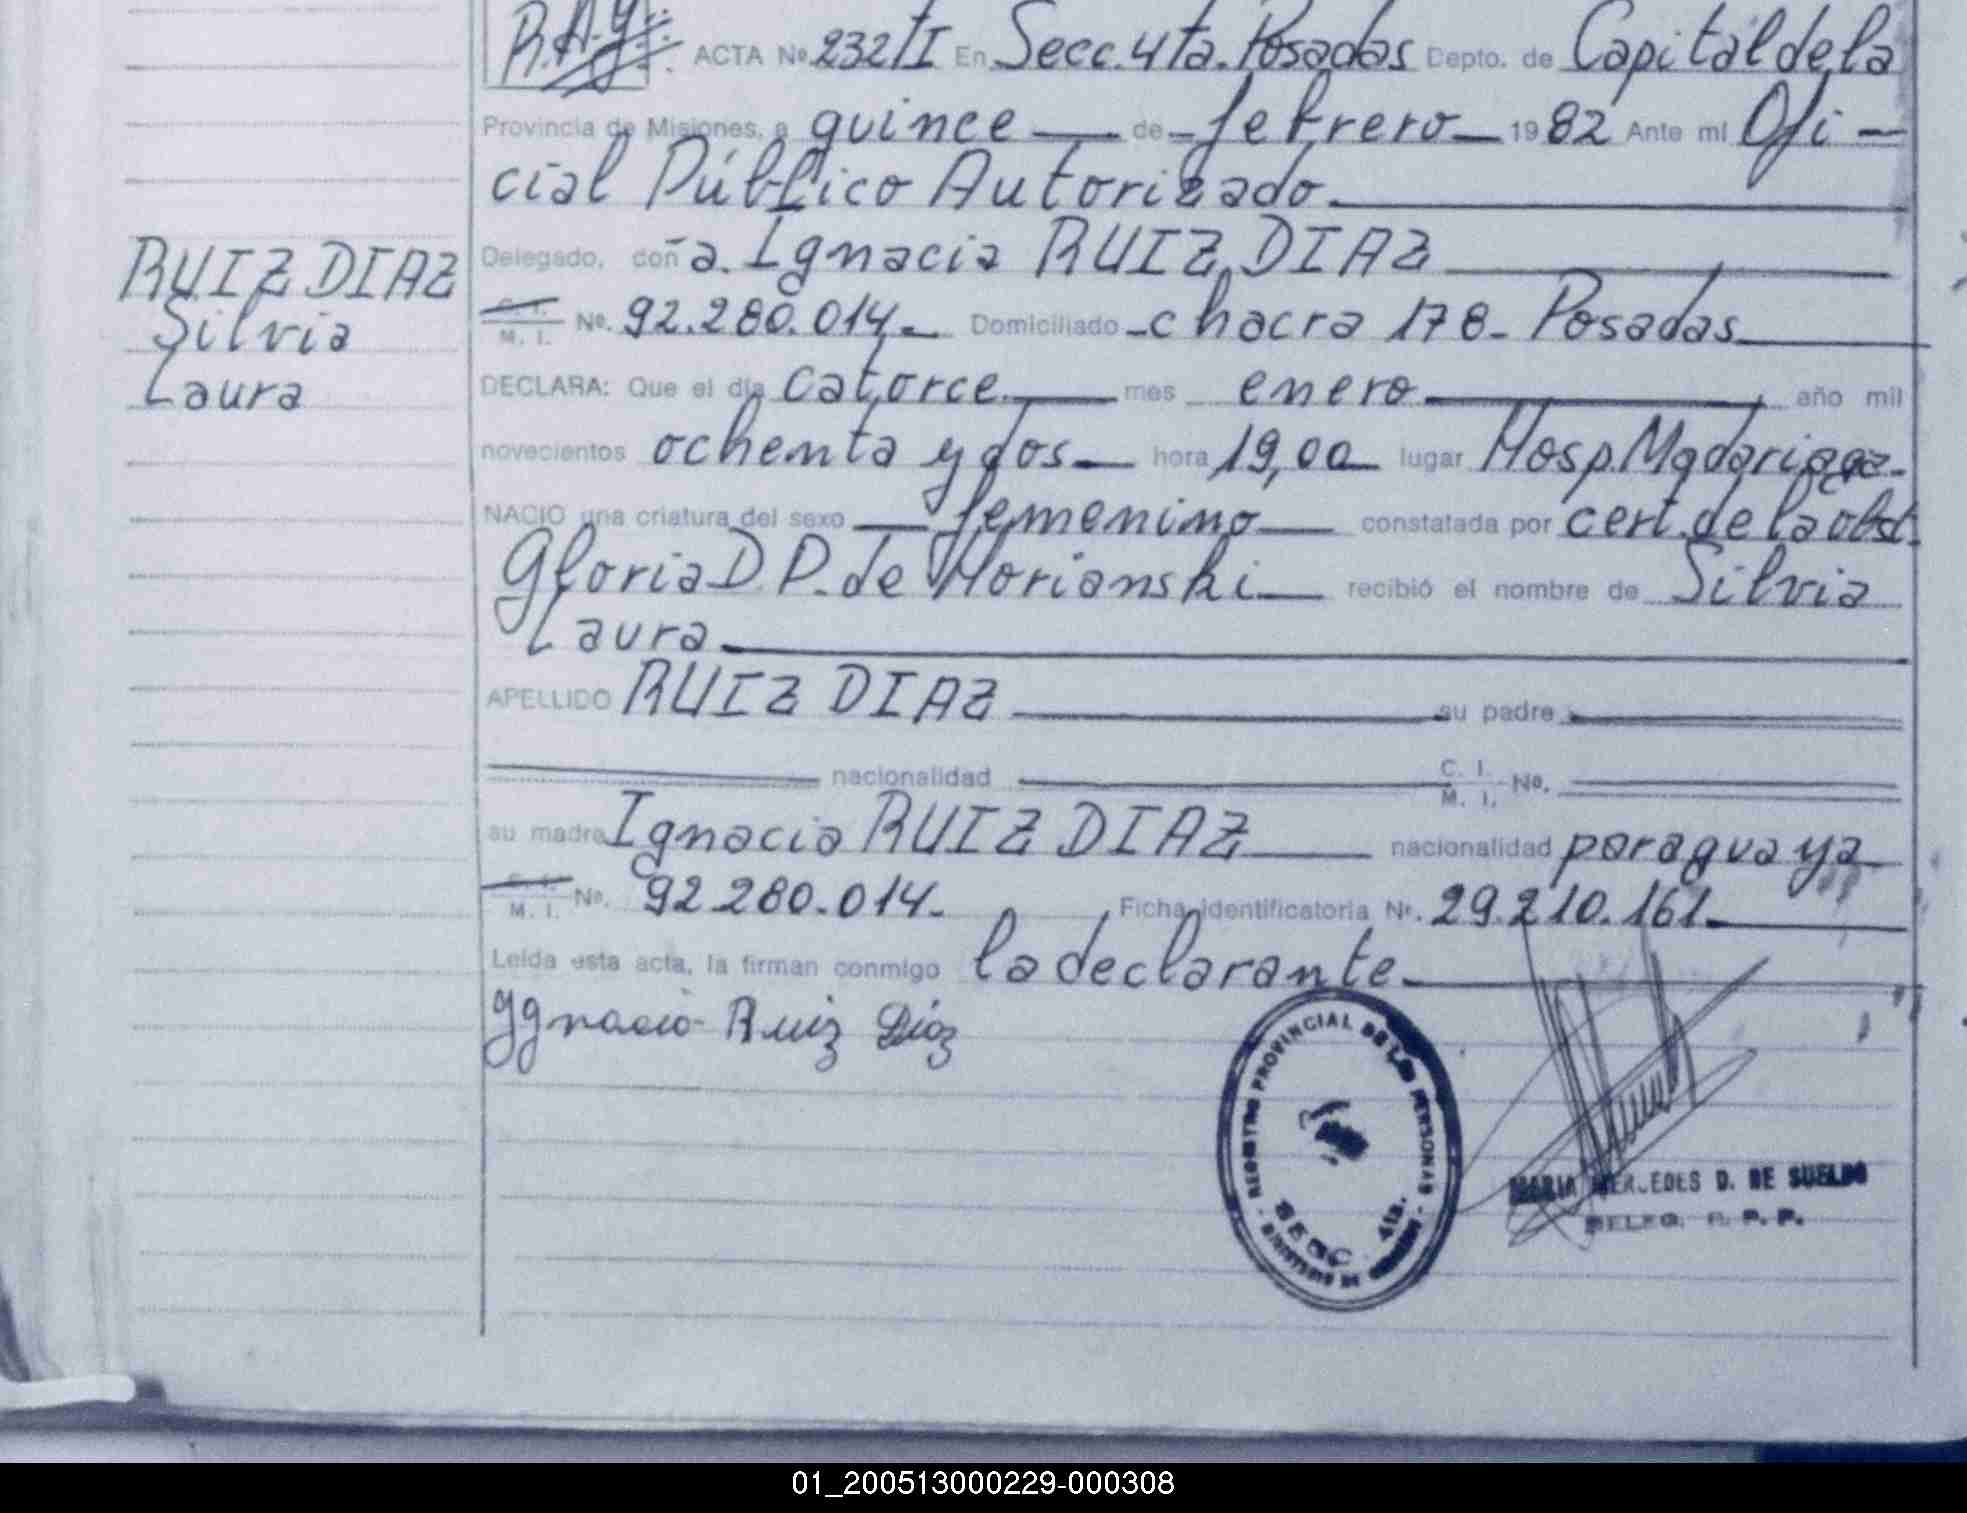 R.A.Y. ACTA Nº 232/I En Secc. 4ta. Posadas Depto. de Capital de la
Provincia de Misiones, a quince de febrero 1982 Ante mí Ofi-
cial Público Autorizado.
Delegado, doña. Ignacia RUIZ DIAZ
RUIZ DIAZ
Silvia
Laura
C. I.
M. I. Nº. 92.280.014.- Domiciliado - chacra 178- Posadas
DECLARA: Que el día catorce. mes enero año mil
novecientos ochenta y dos hora 19,00 lugar Hosp. Madariaga-
NACIO una criatura del sexo femenino constatada por cert. de la obst.
Gloria D P. de Horianski recibió el nombre de Silvia
Laura
APELLIDO RUIZ DIAZ su padre
nacionalidad C. I.
M. I. Nº.
su madre Ignacia RUIZ DIAZ nacionalidad paraguaya
C. I.
M. I. Nº. 92.280.014. Ficha identificatoria Nº. 29.210.161.
Leída esta acta, la firman conmigo la declarante.
Ygnacio Ruiz Díaz
REGISTRO PROVINCIAL DE LAS PERSONAS
SECC. 4ta.
MINISTERIO DE GOBIERNO
MARIA MERCEDES D. DE SUELDO
DELEG. R. P. P.
01_200513000229-000308